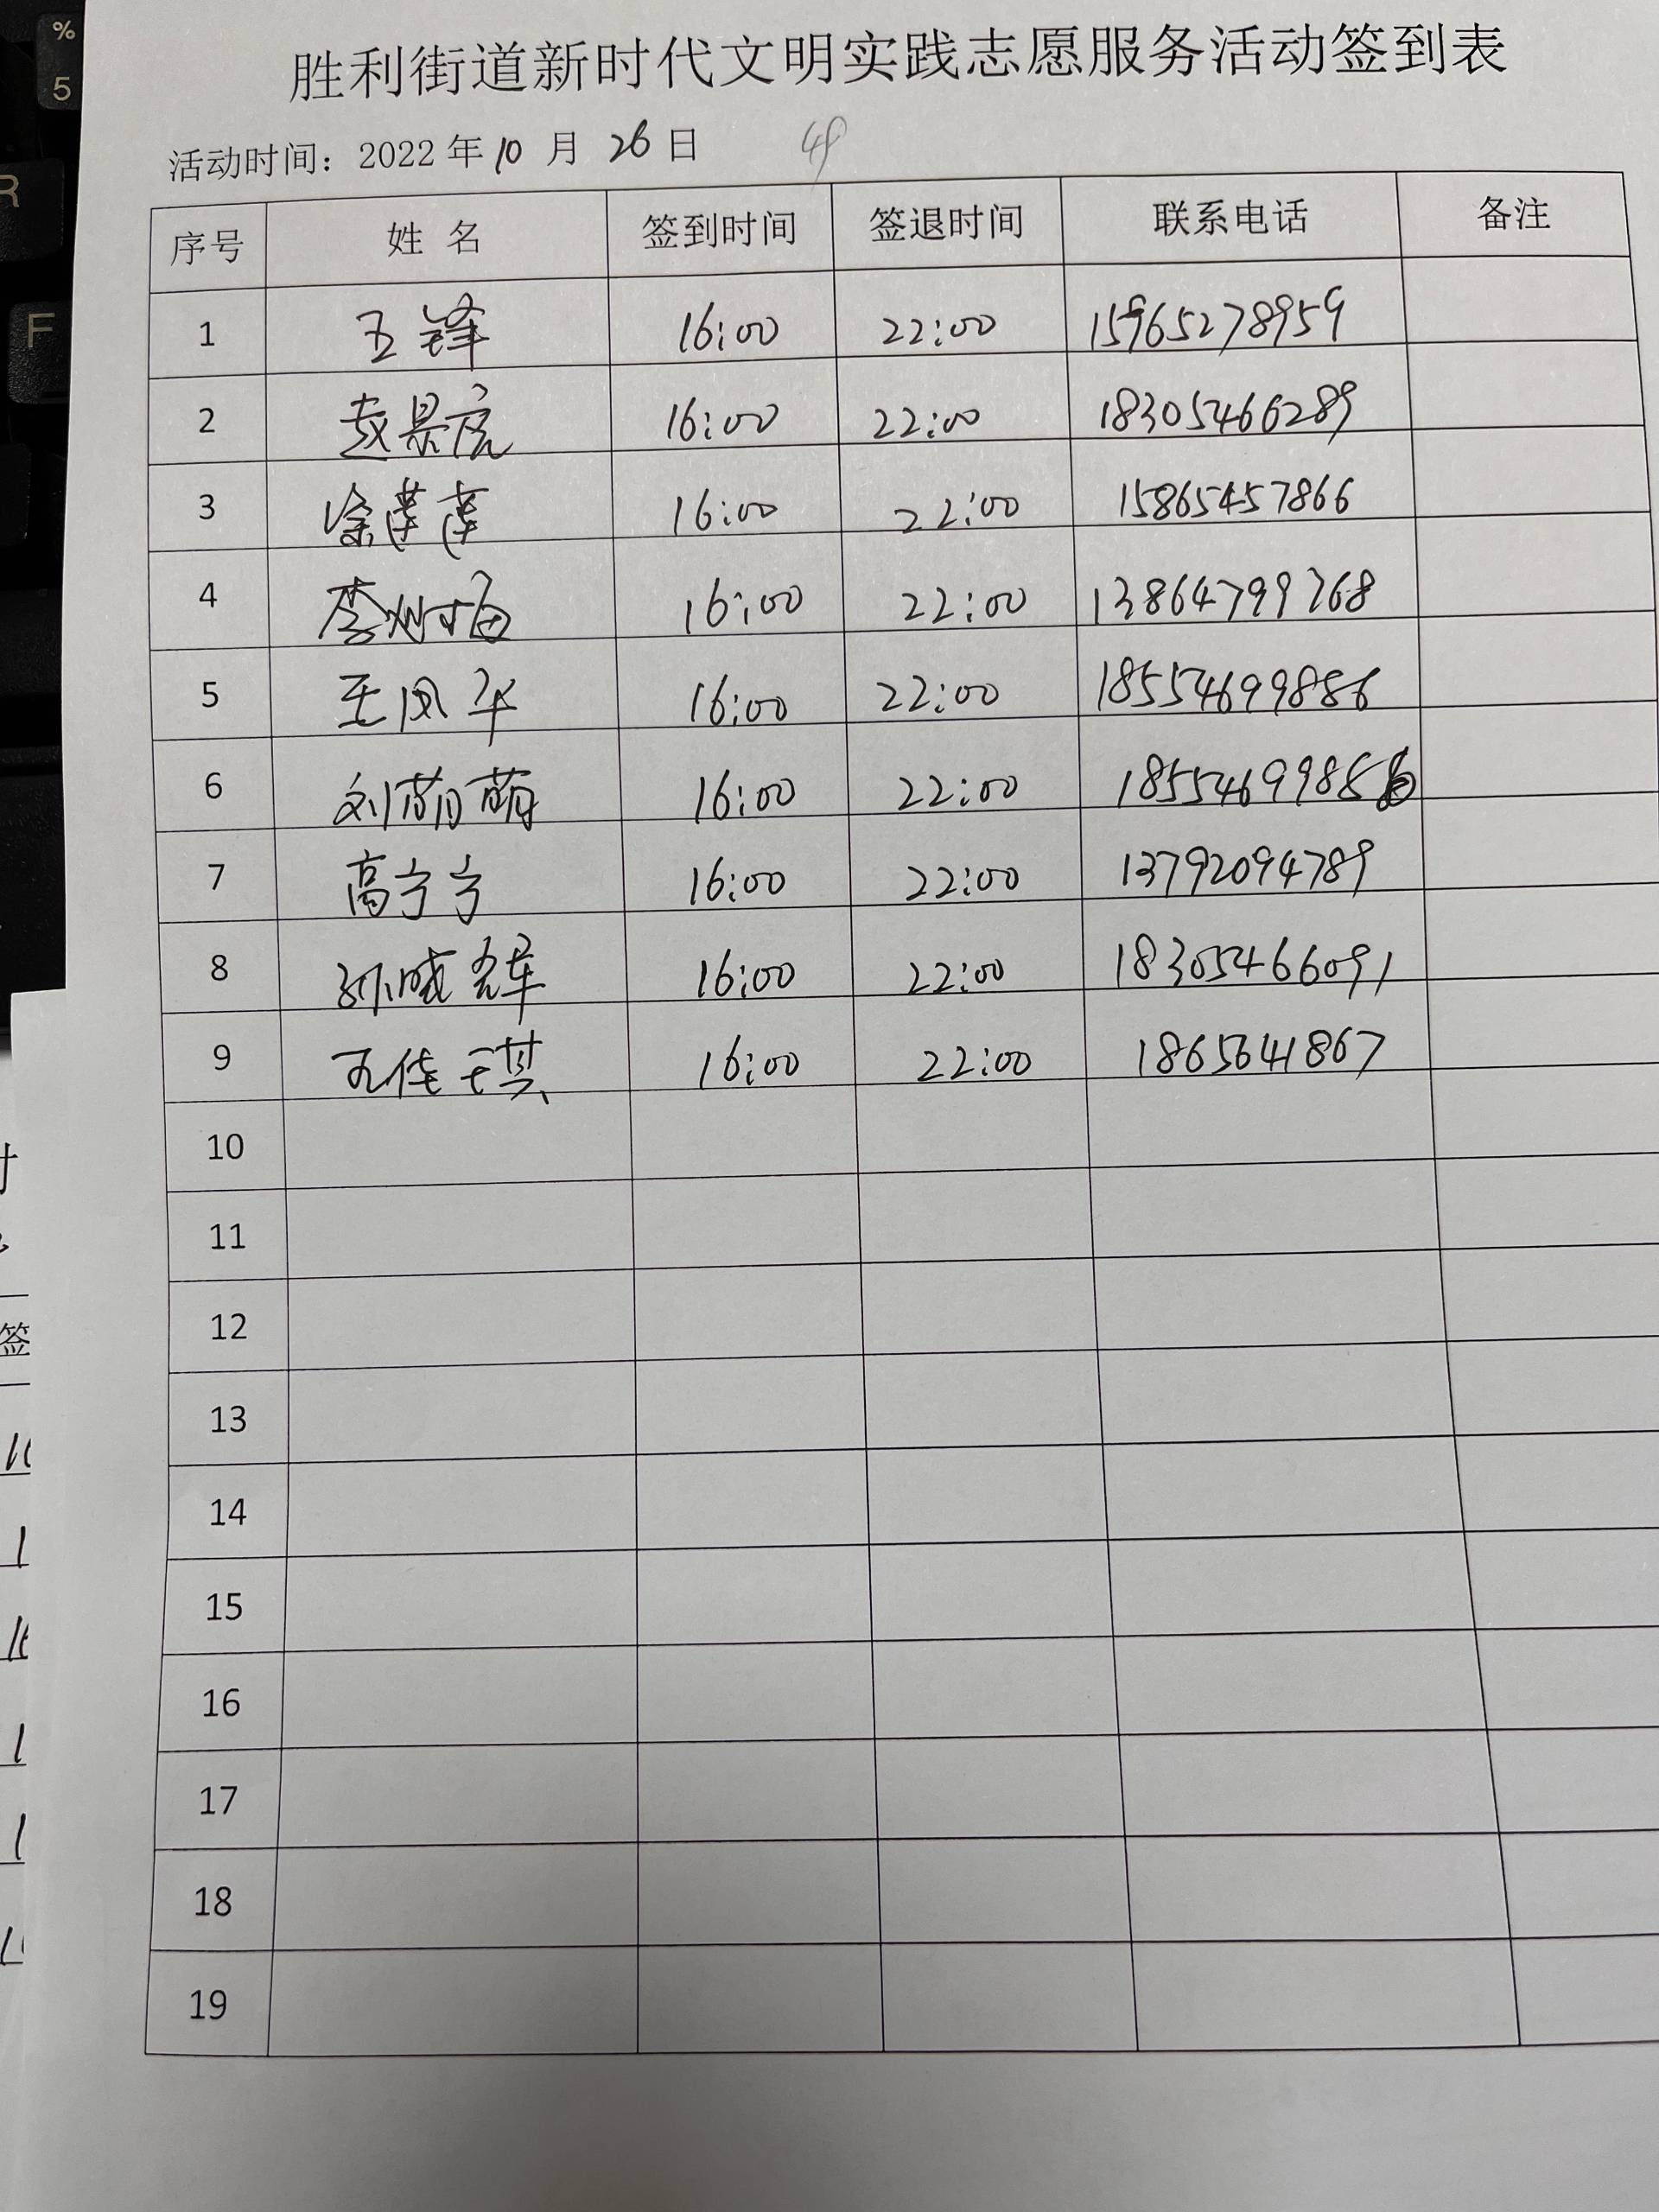 胜利街道新时代文明实践志愿服务活动签到表
活动时间：2022年10月26日
序号 姓名 签到时间 签退时间 联系电话 备注
1 王锋 16:00 22:00 15965278959
2 赵景虎 16:00 22:00 18305466289
3 徐莲莲 16:00 22:00 15865457866
4 16:00 22:00 13864799768
5 王凤华 16:00 22:00 18554699886
6 刘萌萌 16:00 22:00
7 高宁宁 16:00 22:00 13792094789
8 16:00 22:00 18305466091
9 孔佳琪 16:00 22:00 1865641867
10
11
12
13
14
15
16
17
18
19
% 5
R
F
签